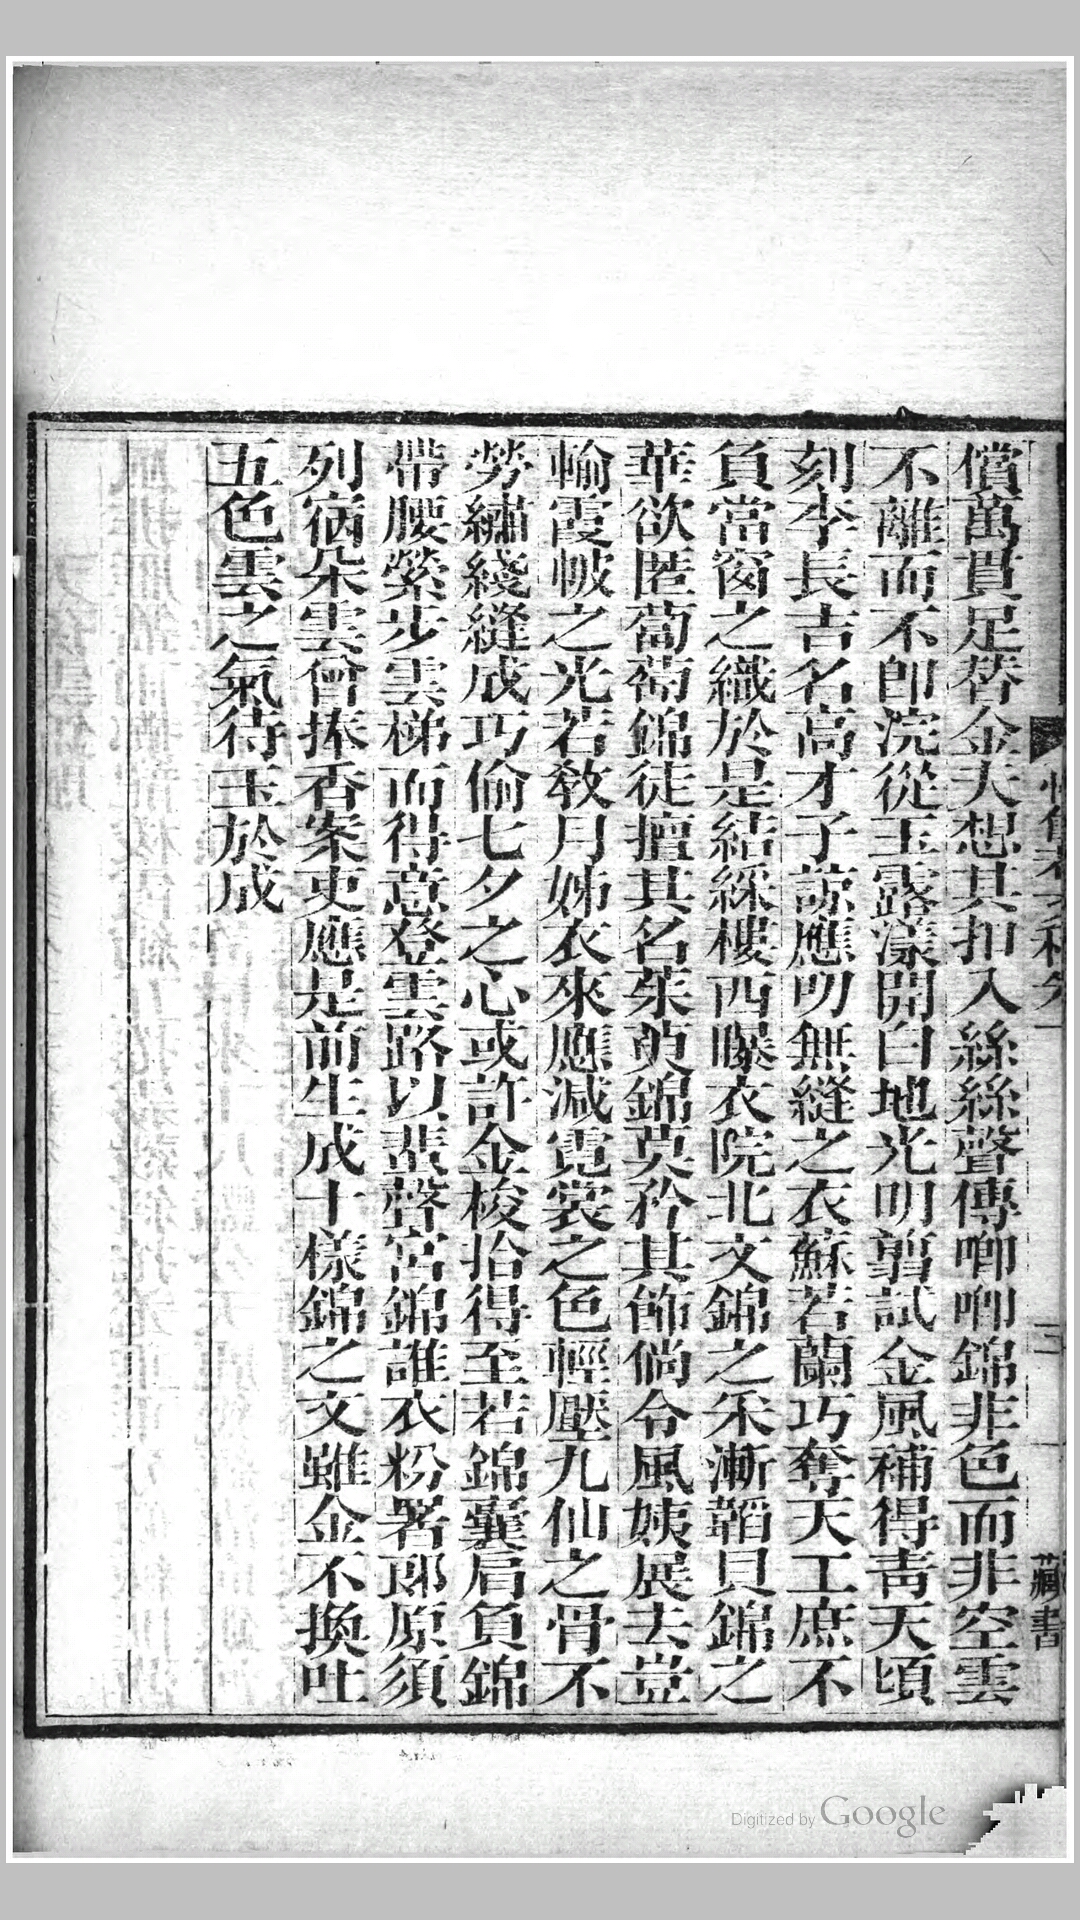 償萬貫足替金夫想其扣入絲絲聲傳唧唧錦非色而非空雲
不離而不卽浣從玉露漾開白地光明翦試金風補得靑天頃
刻李長吉名高才子諒應叨無縫之衣蘇若蘭巧奪天工庶不
負當窗之織於是結綵樓西曝衣院北文錦之禾漸韜貝錦之
華欲匿蔔萄錦徒擅其名茱萸錦莫矜其飾倘令風姨展去豈
輸霞帔之光若敎月姊衣來應減霓裳之色輕壓九仙之骨不
勞繡綫縫成巧偷七夕之心或許金梭拾得至若錦囊肩負錦
帶腰縈步雲梯而得意登雲路以蜚聲宮錦誰衣粉署郎原須
列宿朵雲曾捧香案吏應是前生成十樣錦之文雖金不換吐
五色雲之氣待玉於成
藏書
Digitized by Google